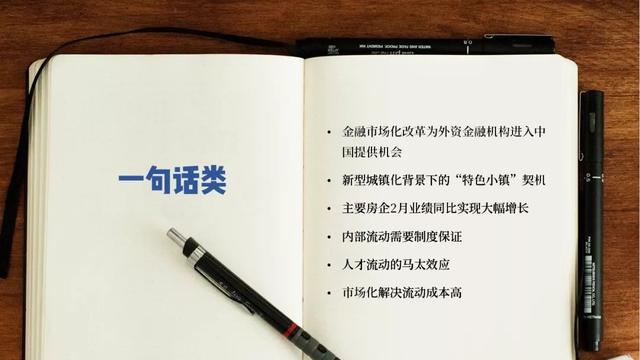 一句话类
• 金融市场化改革为外资金融机构进入中
国提供机会
• 新型城镇化背景下的“特色小镇”契机
• 主要房企2月业绩同比实现大幅增长
• 内部流动需要制度保证
• 人才流动的马太效应
• 市场化解决流动成本高